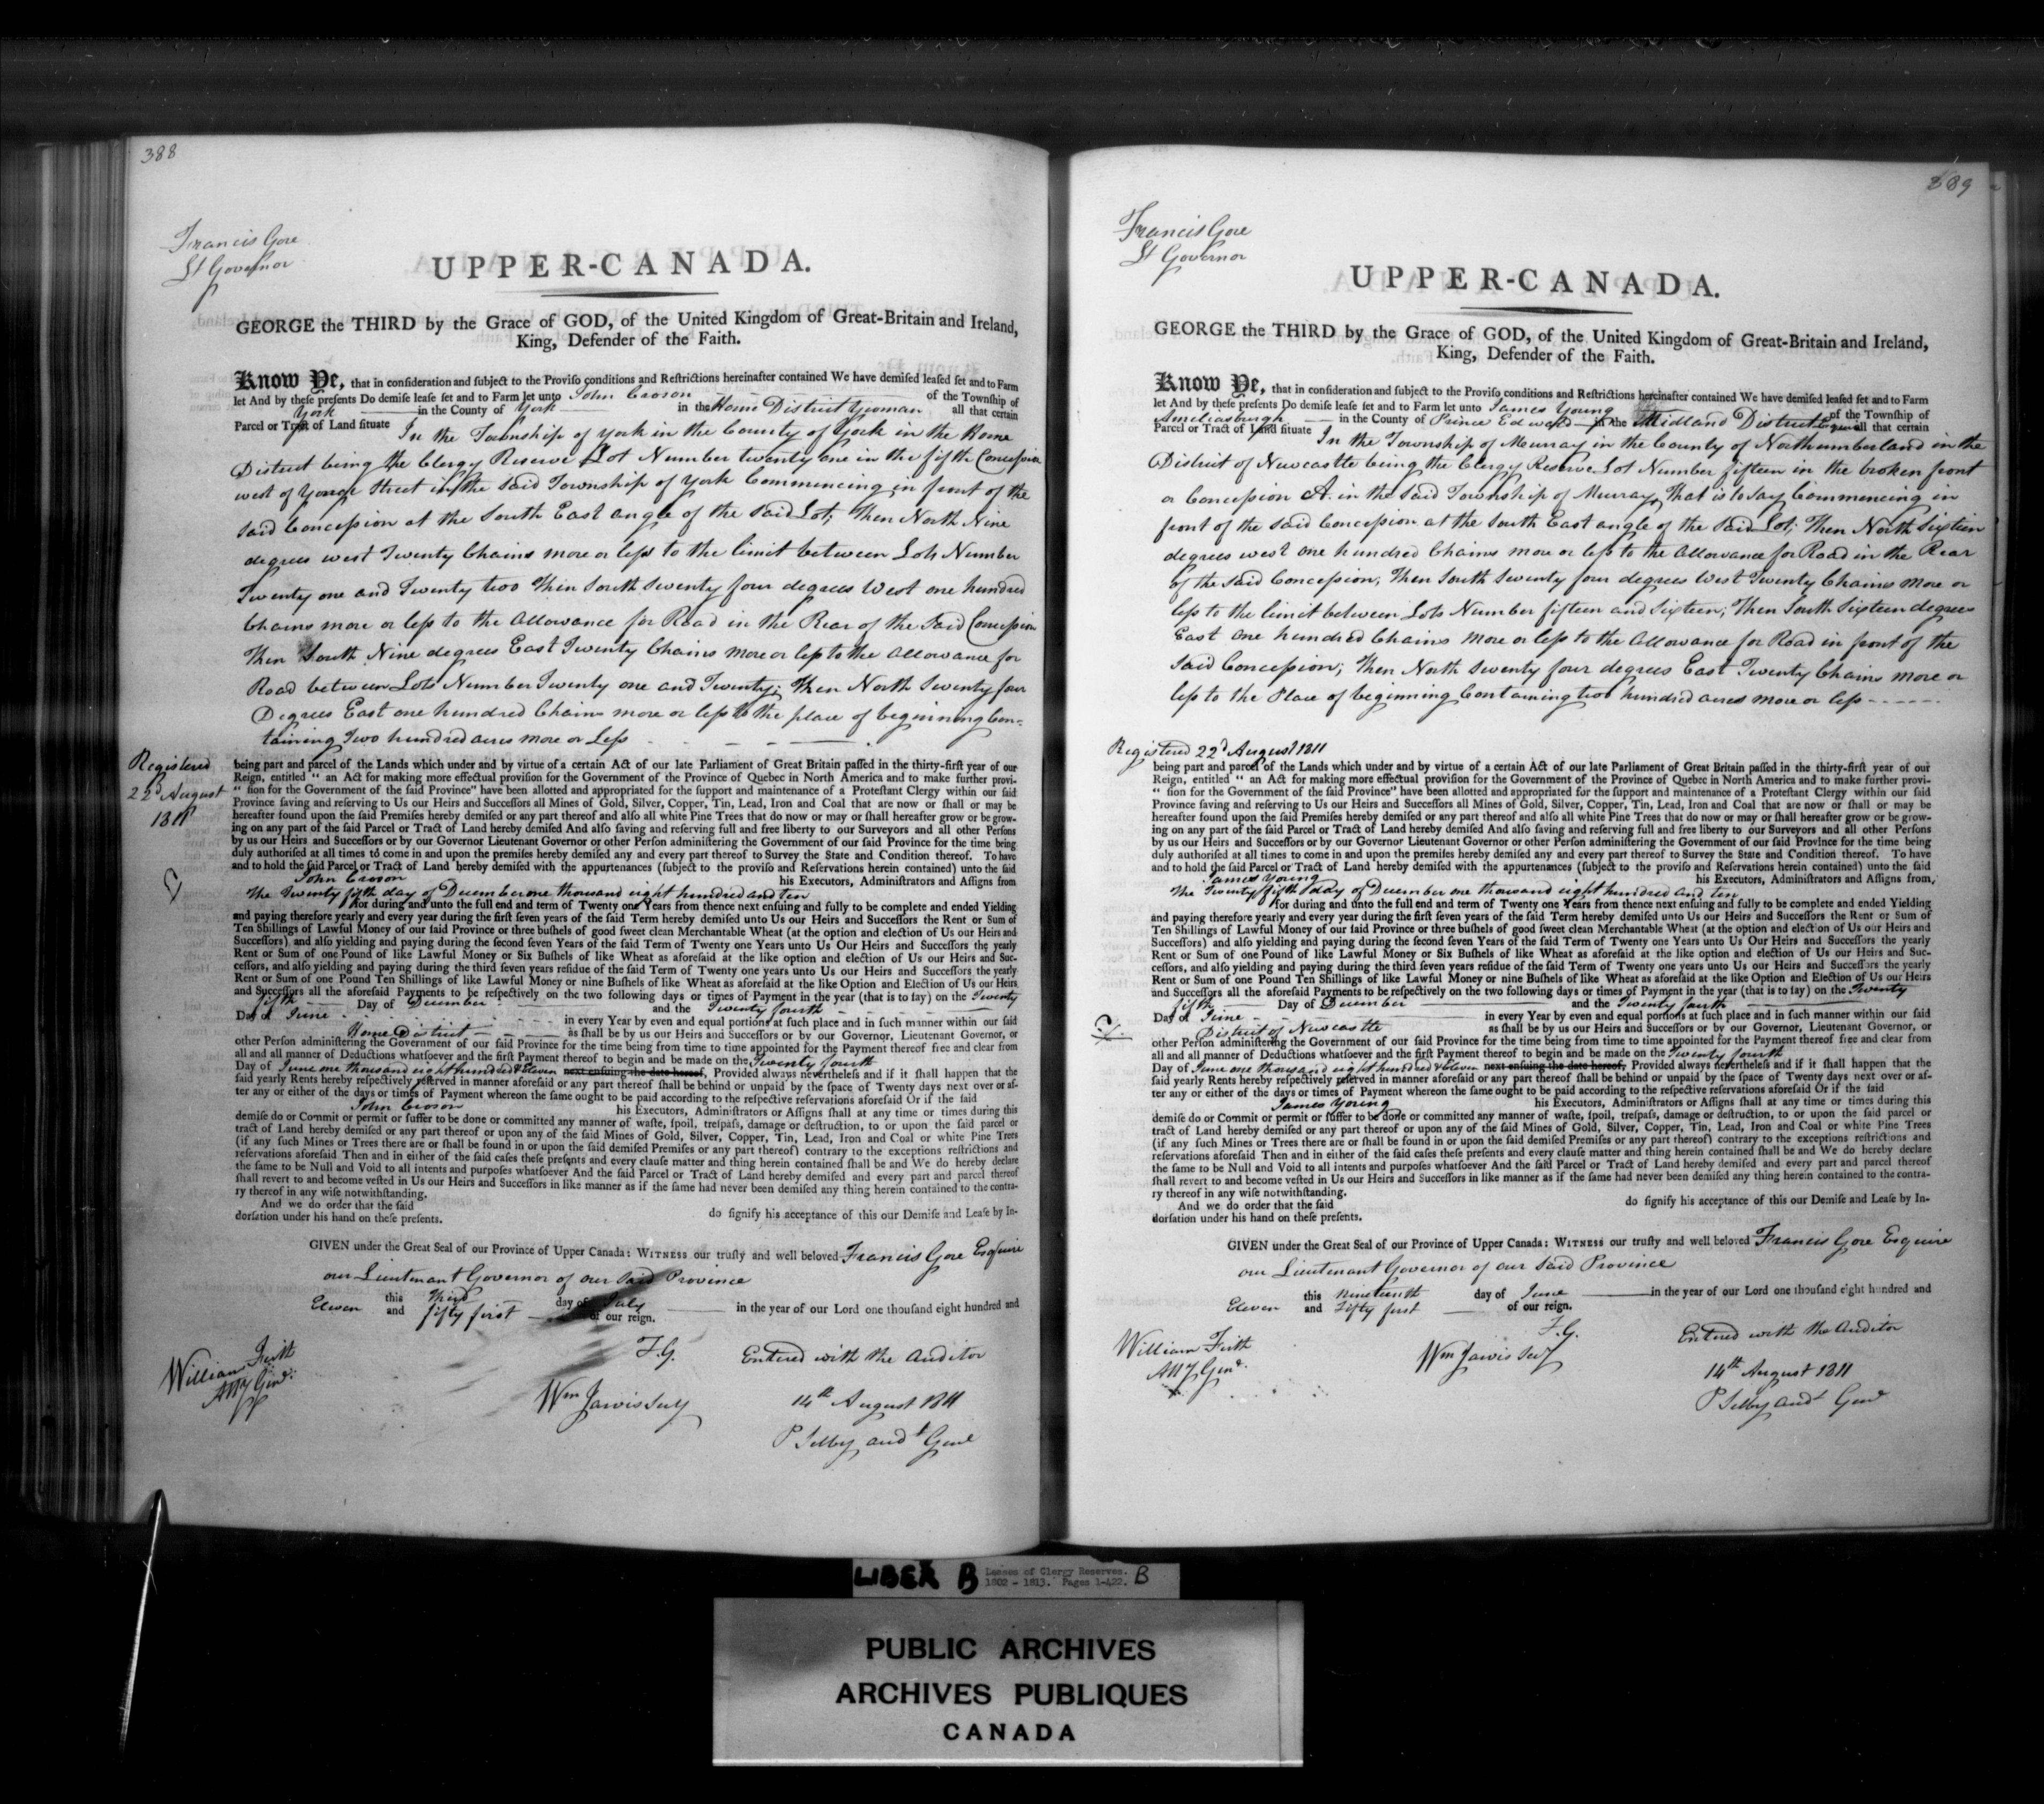 388
Francis Gore
Lt Governor
UPPER-CANADA.
GEORGE the THIRD by the Grace of GOD, of the United Kingdom of Great-Britain and Ireland,
King, Defender of the Faith.
Know Ye, that in conſideration and ſubject to the Proviſo conditions and Reſtrictions hereinafter contained We have demiſed leaſed ſet and to Farm
let And by theſe preſents Do demiſe leaſe ſet and to Farm let unto John Croson of the Township of
York in the County of York in the Home District Yeoman all that certain
Parcel or Tract of Land ſituate In the Township of York in the County of York in the Home
District being the Clergy Reserve Lot Number twenty one in the fifth Concession
west of Yonge Street in the said Township of York Commencing in front of the
said Concession at the South East angle of the said Lot; Then North Nine
degrees west Twenty Chains more or less to the limit between Lots Number
Twenty one and Twenty two Then South Seventy four degrees West one hundred
Chains more or less to the Allowance for Road in the Rear of the said Concession
Then South Nine degrees East Twenty Chains more or less to the Allowance for
Road between Lots Number Twenty one and Twenty; Then North Seventy four
Degrees East one hundred Chains more or less to the place of beginning Con-
taining Two hundred acres more or Less
Registered
22d August
1811
being part and parcel of the Lands which under and by virtue of a certain Act of our late Parliament of Great Britain paſſed in the thirty-firſt year of our
Reign, entitled “ an Act for making more effectual proviſion for the Government of the Province of Quebec in North America and to make further provi-
“ ſion for the Government of the ſaid Province” have been allotted and appropriated for the ſupport and maintenance of a Proteſtant Clergy within our ſaid
Province ſaving and reſerving to Us our Heirs and Succeſſors all Mines of Gold, Silver, Copper, Tin, Lead, Iron and Coal that are now or ſhall or may be
hereafter found upon the ſaid Premiſes hereby demiſed or any part thereof and alſo all white Pine Trees that do now or may or ſhall hereafter grow or be grow-
ing on any part of the ſaid Parcel or Tract of Land hereby demiſed And alſo ſaving and reſerving full and free liberty to our Surveyors and all other Perſons
by us our Heirs and Succeſſors or by our Governor Lieutenant Governor or other Perſon adminiſtering the Government of our ſaid Province for the time being
duly authoriſed at all times to come in and upon the premiſes hereby demiſed any and every part thereof to Survey the State and Condition thereof. To have
and to hold the ſaid Parcel or Tract of Land hereby demiſed with the appurtenances (ſubject to the proviſo and Reſervations herein contained) unto the ſaid
John Croson his Executors, Adminiſtrators and Aſſigns from
The Twenty fifth day of December one thousand eight hundred and Ten
for during and unto the full end and term of Twenty one Years from thence next enſuing and fully to be complete and ended Yielding
and paying therefore yearly and every year during the firſt ſeven years of the ſaid Term hereby demiſed unto Us our Heirs and Succeſſors the Rent or Sum of
Ten Shillings of Lawful Money of our ſaid Province or three buſhels of good ſweet clean Merchantable Wheat (at the option and election of Us our Heirs and
Succeſſors) and alſo yielding and paying during the ſecond ſeven Years of the ſaid Term of Twenty one Years unto Us Our Heirs and Succeſſors the yearly
Rent or Sum of one Pound of like Lawful Money or Six Buſhels of like Wheat as aforeſaid at the like option and election of Us our Heirs and Suc-
ceſſors, and alſo yielding and paying during the third ſeven years reſidue of the ſaid Term of Twenty one years unto Us our Heirs and Succeſſors the yearly
Rent or Sum of one Pound Ten Shillings of like Lawful Money or nine Buſhels of like Wheat as aforeſaid at the like Option and Election of Us our Heirs
and Succeſſors all the aforeſaid Payments to be reſpectively on the two following days or times of Payment in the year (that is to ſay) on the Twenty
fifth Day of December and the Twenty fourth
Day of June in every Year by even and equal portions at ſuch place and in ſuch manner within our ſaid
Home District as ſhall be by us our Heirs and Succeſſors or by our Governor, Lieutenant Governor, or
other Perſon adminiſtering the Government of our ſaid Province for the time being from time to time appointed for the Payment thereof free and clear from
all and all manner of Deductions whatſoever and the firſt Payment thereof to begin and be made on the Twenty fourth
Day of June one thousand eight hundred & Eleven next enſuing the date hereof, Provided always nevertheleſs and if it ſhall happen that the
ſaid yearly Rents hereby reſpectively reſerved in manner aforeſaid or any part thereof ſhall be behind or unpaid by the ſpace of Twenty days next over or af-
ter any or either of the days or times of Payment whereon the ſame ought to be paid according to the reſpective reſervations aforeſaid Or if the ſaid
John Croson his Executors, Adminiſtrators or Aſſigns ſhall at any time or times during this
demiſe do or Commit or permit or ſuffer to be done or committed any manner of waſte, ſpoil, treſpaſs, damage or deſtruction, to or upon the ſaid parcel or
tract of Land hereby demiſed or any part thereof or upon any of the ſaid Mines of Gold, Silver, Copper, Tin, Lead, Iron and Coal or white Pine Trees
(if any ſuch Mines or Trees there are or ſhall be found in or upon the ſaid demiſed Premiſes or any part thereof) contrary to the exceptions reſtrictions and
reſervations aforeſaid Then and in either of the ſaid caſes theſe preſents and every clauſe matter and thing herein contained ſhall be and We do hereby declare
the ſame to be Null and Void to all intents and purpoſes whatſoever And the ſaid Parcel or Tract of Land hereby demiſed and every part and parcel thereof
ſhall revert to and become veſted in Us our Heirs and Succeſſors in like manner as if the ſame had never been demiſed any thing herein contained to the contra-
ry thereof in any wiſe notwithſtanding.
And we do order that the ſaid do ſignify his acceptance of this our Demiſe and Leaſe by In-
dorſation under his hand on theſe preſents.
GIVEN under the Great Seal of our Province of Upper Canada: WITNESS our truſty and well beloved Francis Gore Esquire
our Lieutenant Governor of our said Province
this Third day of July in the year of our Lord one thouſand eight hundred and
Eleven and fifty first of our reign.
F.G.
William Firth
Atty Genl.
Wm Jarvis Secy
Entered with the Auditor
14th August 1811
P Selby Audr Genl
389
Francis Gore
Lt Governor
UPPER-CANADA.
GEORGE the THIRD by the Grace of GOD, of the United Kingdom of Great-Britain and Ireland,
King, Defender of the Faith.
Know Ye, that in conſideration and ſubject to the Proviſo conditions and Reſtrictions hereinafter contained We have demiſed leaſed ſet and to Farm
let And by theſe preſents Do demiſe leaſe ſet and to Farm let unto James Young of the Township of
Ameliasburgh in the County of Prince Edward in the Midland District Esquire all that certain
Parcel or Tract of Land ſituate In the Township of Murray in the County of Northumberland in the
District of Newcastle being the Clergy Reserve Lot Number fifteen in the broken front
or Concession A. in the said Township of Murray, That is to say Commencing in
front of the said Concession at the South East angle of the said Lot; Then North Sixteen
degrees west one hundred Chains more or less to the Allowance for Road in the Rear
of the said Concession, Then South Seventy four degrees West Twenty Chains more or
less to the limit between Lots Number fifteen and Sixteen; Then South Sixteen degrees
East one hundred Chains more or less to the Allowance for Road in front of the
said Concession; Then North Seventy four degrees East Twenty Chains more or
less to the Place of beginning Containing two hundred acres more or less
Registered 22d August 1811
being part and parcel of the Lands which under and by virtue of a certain Act of our late Parliament of Great Britain paſſed in the thirty-firſt year of our
Reign, entitled “ an Act for making more effectual proviſion for the Government of the Province of Quebec in North America and to make further provi-
“ ſion for the Government of the ſaid Province” have been allotted and appropriated for the ſupport and maintenance of a Proteſtant Clergy within our ſaid
Province ſaving and reſerving to Us our Heirs and Succeſſors all Mines of Gold, Silver, Copper, Tin, Lead, Iron and Coal that are now or ſhall or may be
hereafter found upon the ſaid Premiſes hereby demiſed or any part thereof and alſo all white Pine Trees that do now or may or ſhall hereafter grow or be grow-
ing on any part of the ſaid Parcel or Tract of Land hereby demiſed And alſo ſaving and reſerving full and free liberty to our Surveyors and all other Perſons
by us our Heirs and Succeſſors or by our Governor Lieutenant Governor or other Perſon adminiſtering the Government of our ſaid Province for the time being
duly authoriſed at all times to come in and upon the premiſes hereby demiſed any and every part thereof to Survey the State and Condition thereof. To have
and to hold the ſaid Parcel or Tract of Land hereby demiſed with the appurtenances (ſubject to the proviſo and Reſervations herein contained) unto the ſaid
James Young his Executors, Adminiſtrators and Aſſigns from
The Twenty fifth day of December one thousand eight hundred and ten
for during and unto the full end and term of Twenty one Years from thence next enſuing and fully to be complete and ended Yielding
and paying therefore yearly and every year during the firſt ſeven years of the ſaid Term hereby demiſed unto Us our Heirs and Succeſſors the Rent or Sum of
Ten Shillings of Lawful Money of our ſaid Province or three buſhels of good ſweet clean Merchantable Wheat (at the option and election of Us our Heirs and
Succeſſors) and alſo yielding and paying during the ſecond ſeven Years of the ſaid Term of Twenty one Years unto Us Our Heirs and Succeſſors the yearly
Rent or Sum of one Pound of like Lawful Money or Six Buſhels of like Wheat as aforeſaid at the like option and election of Us our Heirs and Suc-
ceſſors, and alſo yielding and paying during the third ſeven years reſidue of the ſaid Term of Twenty one years unto Us our Heirs and Succeſſors the yearly
Rent or Sum of one Pound Ten Shillings of like Lawful Money or nine Buſhels of like Wheat as aforeſaid at the like Option and Election of Us our Heirs
and Succeſſors all the aforeſaid Payments to be reſpectively on the two following days or times of Payment in the year (that is to ſay) on the Twenty
fifth Day of December and the Twenty fourth
Day of June in every Year by even and equal portions at ſuch place and in ſuch manner within our ſaid
District of Newcastle as ſhall be by us our Heirs and Succeſſors or by our Governor, Lieutenant Governor, or
other Perſon adminiſtering the Government of our ſaid Province for the time being from time to time appointed for the Payment thereof free and clear from
all and all manner of Deductions whatſoever and the firſt Payment thereof to begin and be made on the Twenty fourth
Day of June one thousand eight hundred & Eleven next enſuing the date hereof, Provided always nevertheleſs and if it ſhall happen that the
ſaid yearly Rents hereby reſpectively reſerved in manner aforeſaid or any part thereof ſhall be behind or unpaid by the ſpace of Twenty days next over or af-
ter any or either of the days or times of Payment whereon the ſame ought to be paid according to the reſpective reſervations aforeſaid Or if the ſaid
James Young his Executors, Adminiſtrators or Aſſigns ſhall at any time or times during this
demiſe do or Commit or permit or ſuffer to be done or committed any manner of waſte, ſpoil, treſpaſs, damage or deſtruction, to or upon the ſaid parcel or
tract of Land hereby demiſed or any part thereof or upon any of the ſaid Mines of Gold, Silver, Copper, Tin, Lead, Iron and Coal or white Pine Trees
(if any ſuch Mines or Trees there are or ſhall be found in or upon the ſaid demiſed Premiſes or any part thereof) contrary to the exceptions reſtrictions and
reſervations aforeſaid Then and in either of the ſaid caſes theſe preſents and every clauſe matter and thing herein contained ſhall be and We do hereby declare
the ſame to be Null and Void to all intents and purpoſes whatſoever And the ſaid Parcel or Tract of Land hereby demiſed and every part and parcel thereof
ſhall revert to and become veſted in Us our Heirs and Succeſſors in like manner as if the ſame had never been demiſed any thing herein contained to the contra-
ry thereof in any wiſe notwithſtanding.
And we do order that the ſaid do ſignify his acceptance of this our Demiſe and Leaſe by In-
dorſation under his hand on theſe preſents.
GIVEN under the Great Seal of our Province of Upper Canada: WITNESS our truſty and well beloved Francis Gore Esquire
our Lieutenant Governor of our said Province
this nineteenth day of June in the year of our Lord one thouſand eight hundred and
Eleven and Fifty first of our reign.
F.G.
William Firth
Atty Genl.
Wm Jarvis Secy
Entered with the Auditor
14th August 1811
P Selby Audr Genl
LIBER B Leases of Clergy Reserves. B
1802 - 1813. Pages 1-422.
PUBLIC ARCHIVES
ARCHIVES PUBLIQUES
CANADA